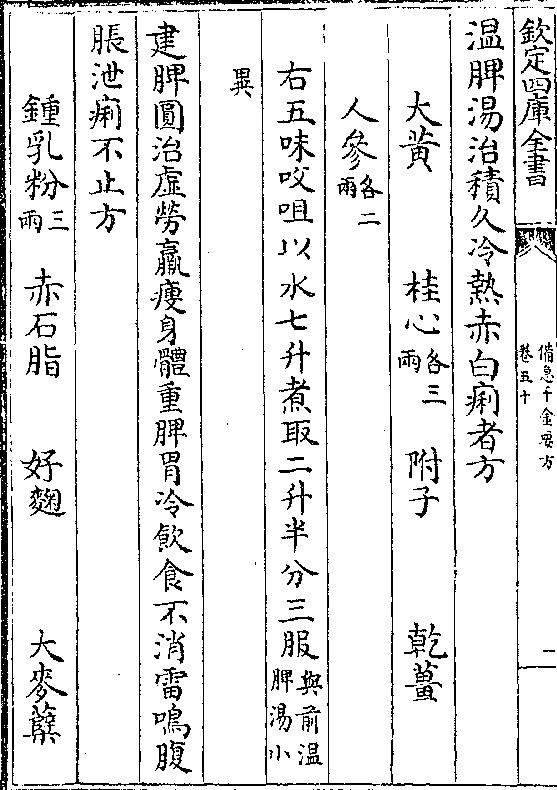 欽定四庫全書
備急千金要方
卷五十
一
温脾湯治積久冷熱赤白痢者方
大黃 桂心各三兩 附子 乾薑
人參各二兩
右五味㕮咀以水七升煮取二升半分三服與前温脾湯小
異
建脾圓治虛勞羸瘦身體重脾胃冷飲食不消雷鳴腹
脹泄痢不止方
鍾乳粉三兩 赤石脂 好麴 大麥蘖